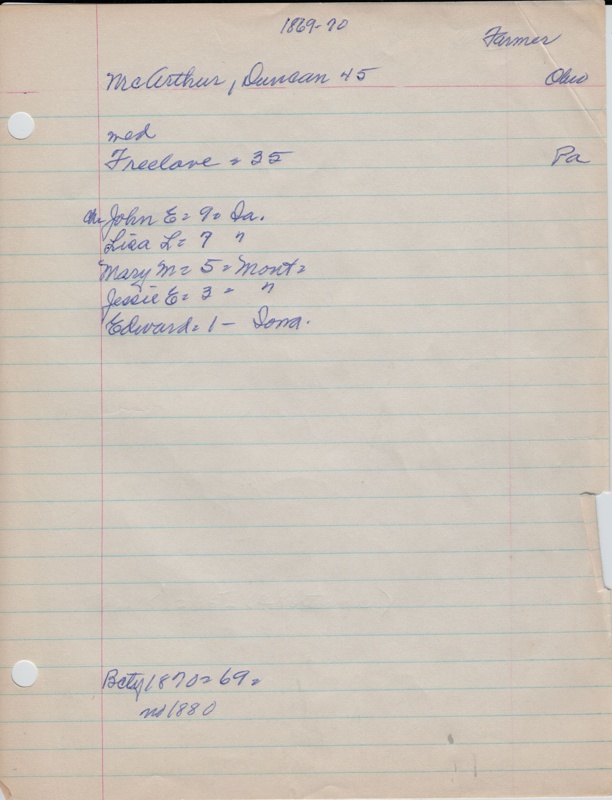 1869-70
Farmer
McArthur, Duncan 45 Ohio
med
Freelove = 35 Pa
Ch John E = 9 = Ia.
Liza L = 7 "
Mary M = 5 = Mont =
Jessie E = 3 = "
Edward = 1 - Iowa.
Bcty 1870 = 69 =
no 1880